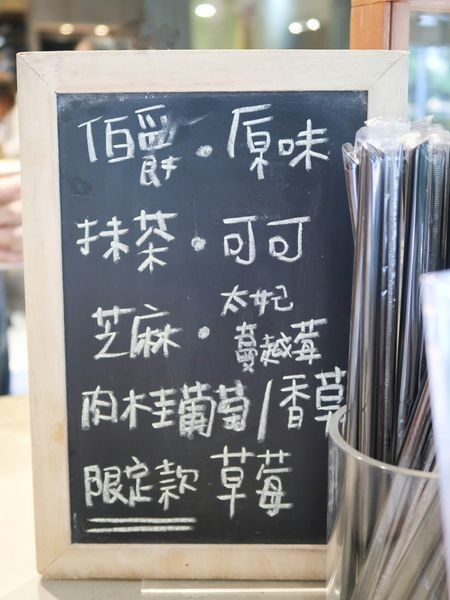 伯爵・原味
抹茶・可可
芝麻・太妃蔓越莓
肉桂葡萄/香草
限定款 草莓